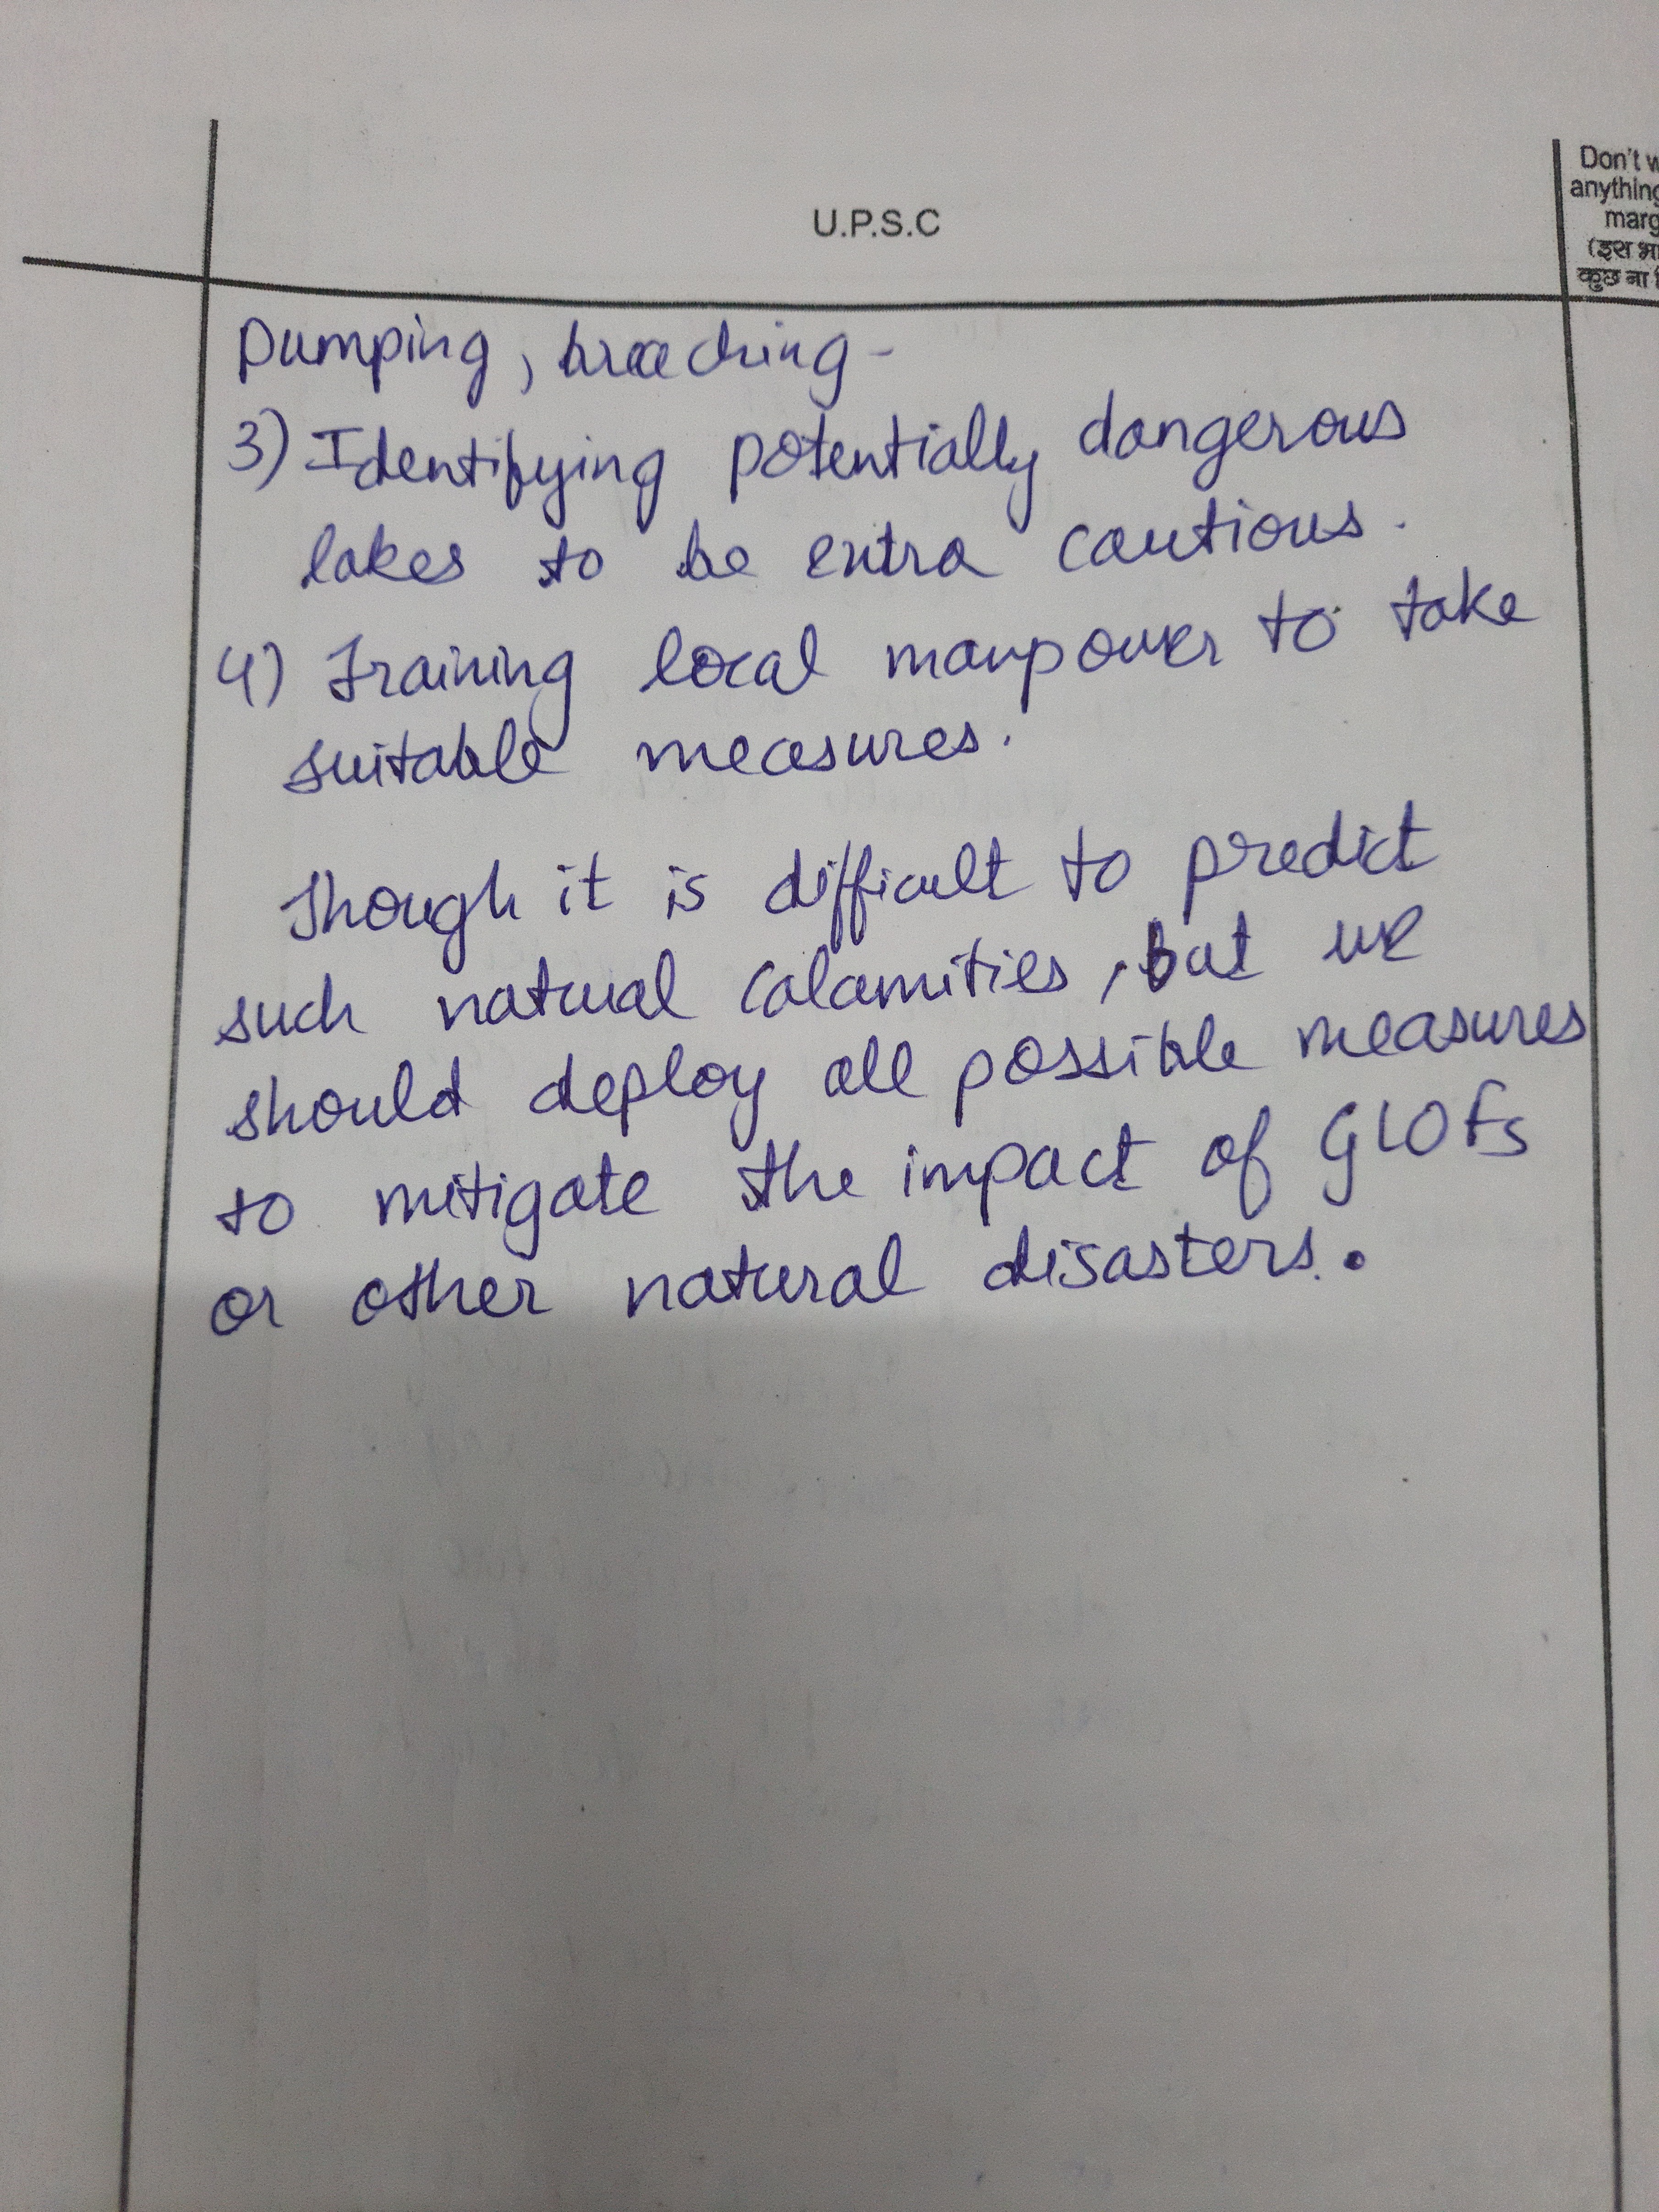 U.P.S.C
Don't w
anything
marg
(इस भा
कुछ ना
Pumping, breaching-
3) Identifying potentially dangerous
lakes to be extra cautious.
4) Training local manpower to take
suitable measures.
Though it is difficult to predict
such natural calamities, but we
should deploy all possible measures
to mitigate the impact of GLOFs
or other natural disasters.